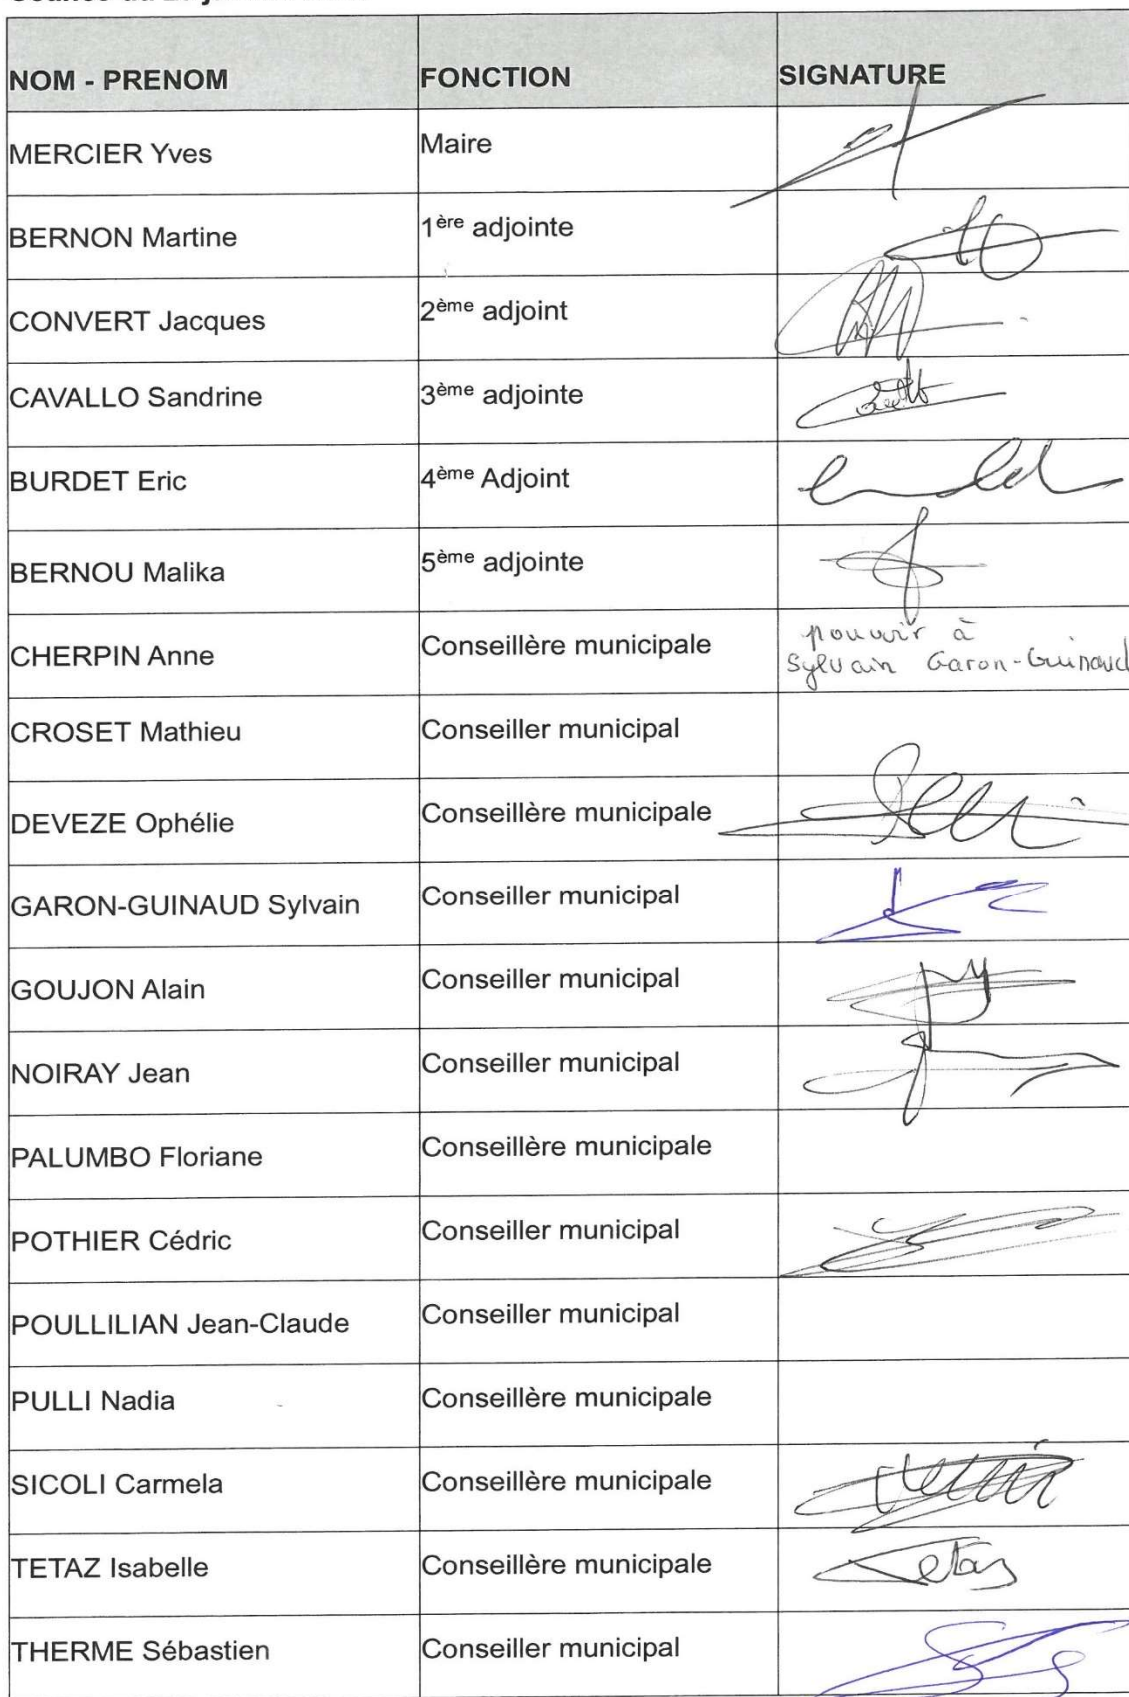 NOM - PRENOM FONCTION SIGNATURE
MERCIER Yves Maire
BERNON Martine 1ère adjointe
CONVERT Jacques 2ème adjoint
CAVALLO Sandrine 3ème adjointe
BURDET Eric 4ème Adjoint
BERNOU Malika 5ème adjointe
CHERPIN Anne Conseillère municipale pouvoir à
Sylvain Garon-Guinaud
CROSET Mathieu Conseiller municipal
DEVEZE Ophélie Conseillère municipale
GARON-GUINAUD Sylvain Conseiller municipal
GOUJON Alain Conseiller municipal
NOIRAY Jean Conseiller municipal
PALUMBO Floriane Conseillère municipale
POTHIER Cédric Conseiller municipal
POULLILIAN Jean-Claude Conseiller municipal
PULLI Nadia Conseillère municipale
SICOLI Carmela Conseillère municipale
TETAZ Isabelle Conseillère municipale Tetaz
THERME Sébastien Conseiller municipal